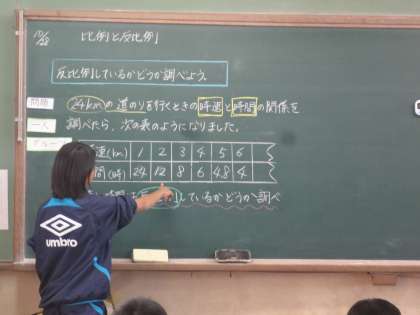 10/28 比例と反比例
反比例しているかどうか調べよう。
問題 24kmの道のりを行くときの時速と時間の関係を
一人 調べたら、次の表のようになりました。
グループ
速(km) 1 2 3 4 5 6
間(時) 24 12 8 6 4.8 4
しているかどうか調べ
umbro